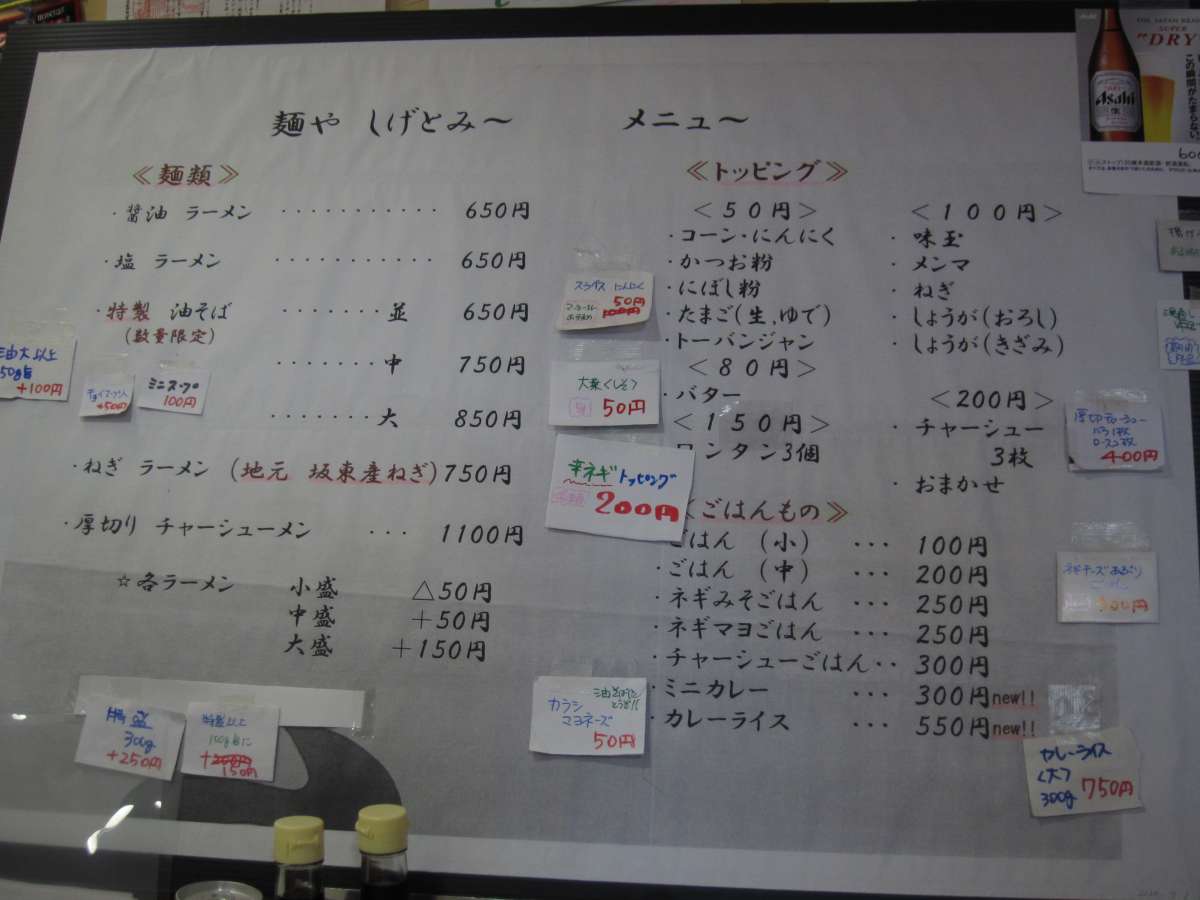 麺や しげとみ～ メニュー～
≪麺類≫
・醤油 ラーメン ············ 650円
・塩 ラーメン ············ 650円
・特製 油そば ······· 並 650円
(数量限定)
······· 中 750円
······· 大 850円
・ねぎ ラーメン (地元 坂東産ねぎ) 750円
・厚切り チャーシューメン ··· 1100円
☆各ラーメン 小盛 △50円
中盛 +50円
大盛 +150円
油大以上
+100円
+50円
ミニスープ
100円
300g
+250円
特製以上
+200円
150円
≪トッピング≫
<50円>
・コーン・にんにく
・かつお粉
・にぼし粉
・たまご(生,ゆで)
・トーバンジャン
<80円>
・バター
<150円>
ワンタン3個
<100円>
・味玉
・メンマ
・ねぎ
・しょうが(おろし)
・しょうが(きざみ)
<200円>
・チャーシュー
3枚
・おまかせ
にんにく
50円
100円
50円
辛ネギ トッピング
200円
≪ごはんもの≫
ごはん (小) ··· 100円
・ごはん (中) ··· 200円
・ネギみそごはん ··· 250円
・ネギマヨごはん ··· 250円
・チャーシューごはん·· 300円
・ミニカレー ··· 300円new!!
・カレーライス ··· 550円new!!
カラシ
マヨネーズ
50円
厚切チャーシュー
400円
300円
カレーライス
<大>
300g 750円
THE JAPAN BEER
SUPER
"DRY"
Asahi
生
この瞬間がたまらない。
600